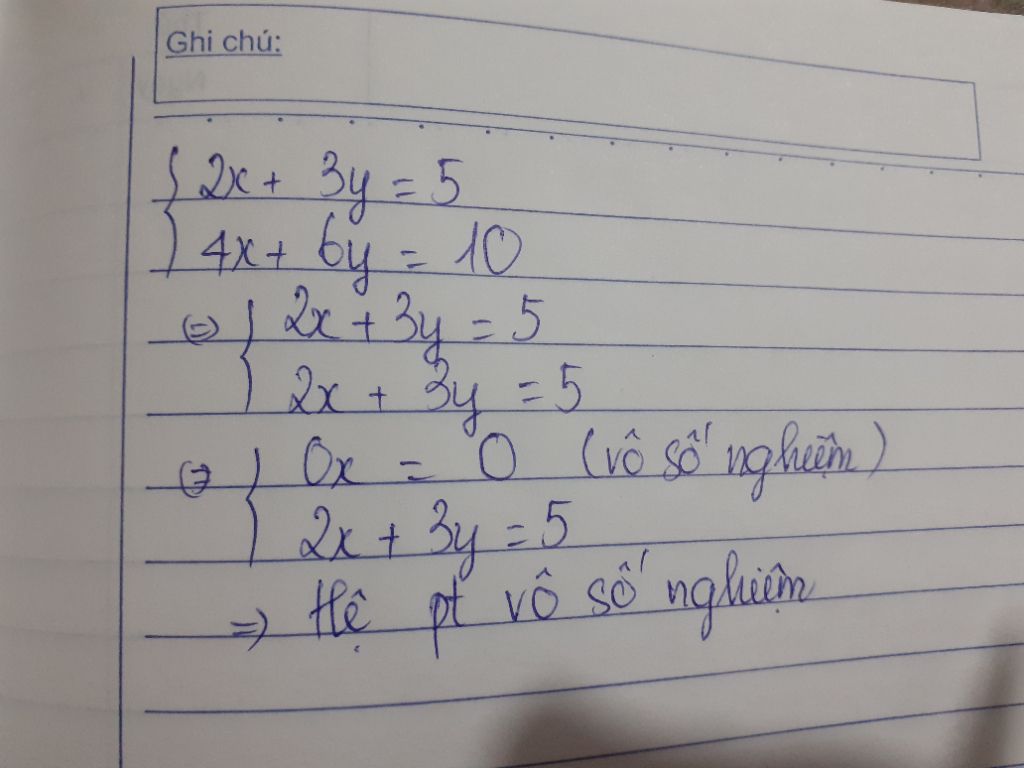 Ghi chú:
{ 2x + 3y = 5
4x + 6y = 10
⇔ { 2x + 3y = 5
2x + 3y = 5
⇔ { 0x = 0 (vô số nghiệm)
2x + 3y = 5
⇒ Hệ pt vô số nghiệm